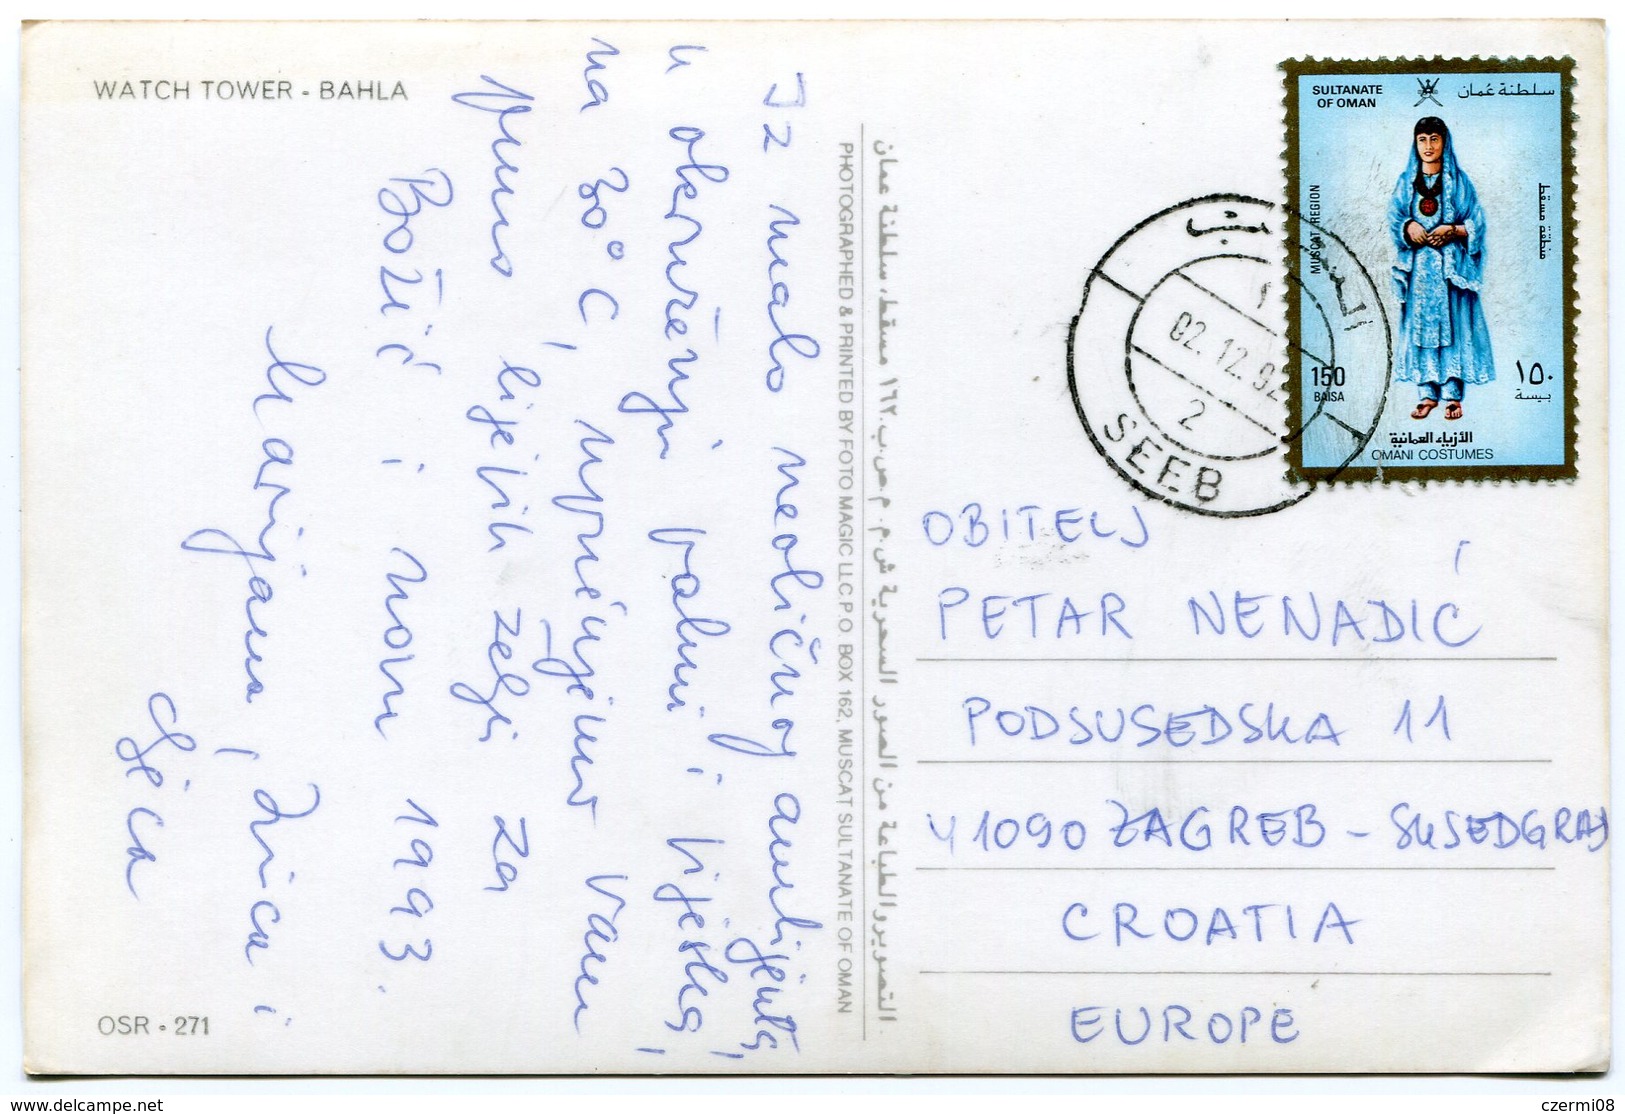 WATCH TOWER - BAHLA
Iz malo neobičnog ambijenta,
u okruženju palmi i pijeska,
na 30°C, upućujemo Vam
puno lijepih želja za
Božić i novu 1993.
Marijana, Zrica i
OSR - 271
التصوير والطباعة من الصور السحرية ش.م.م. ص.ب. ١٦٢ مسقط، سلطنة عمان
PHOTOGRAPHED & PRINTED BY FOTO MAGIC LLC P.O. BOX 162, MUSCAT SULTANATE OF OMAN
SULTANATE
OF OMAN
سلطنة عُمان
MUSCAT REGION
منطقة مسقط
150
BAISA
١٥٠
بيسة
الأزياء العمانية
OMANI COSTUMES
السيب
١
02.12.92
2
SEEB
OBITELJ
PETAR NENADIĆ
PODSUSEDSKA 11
41090 ZAGREB - SUSEDGRAD
CROATIA
EUROPE
www.delcampe.net
czermi08